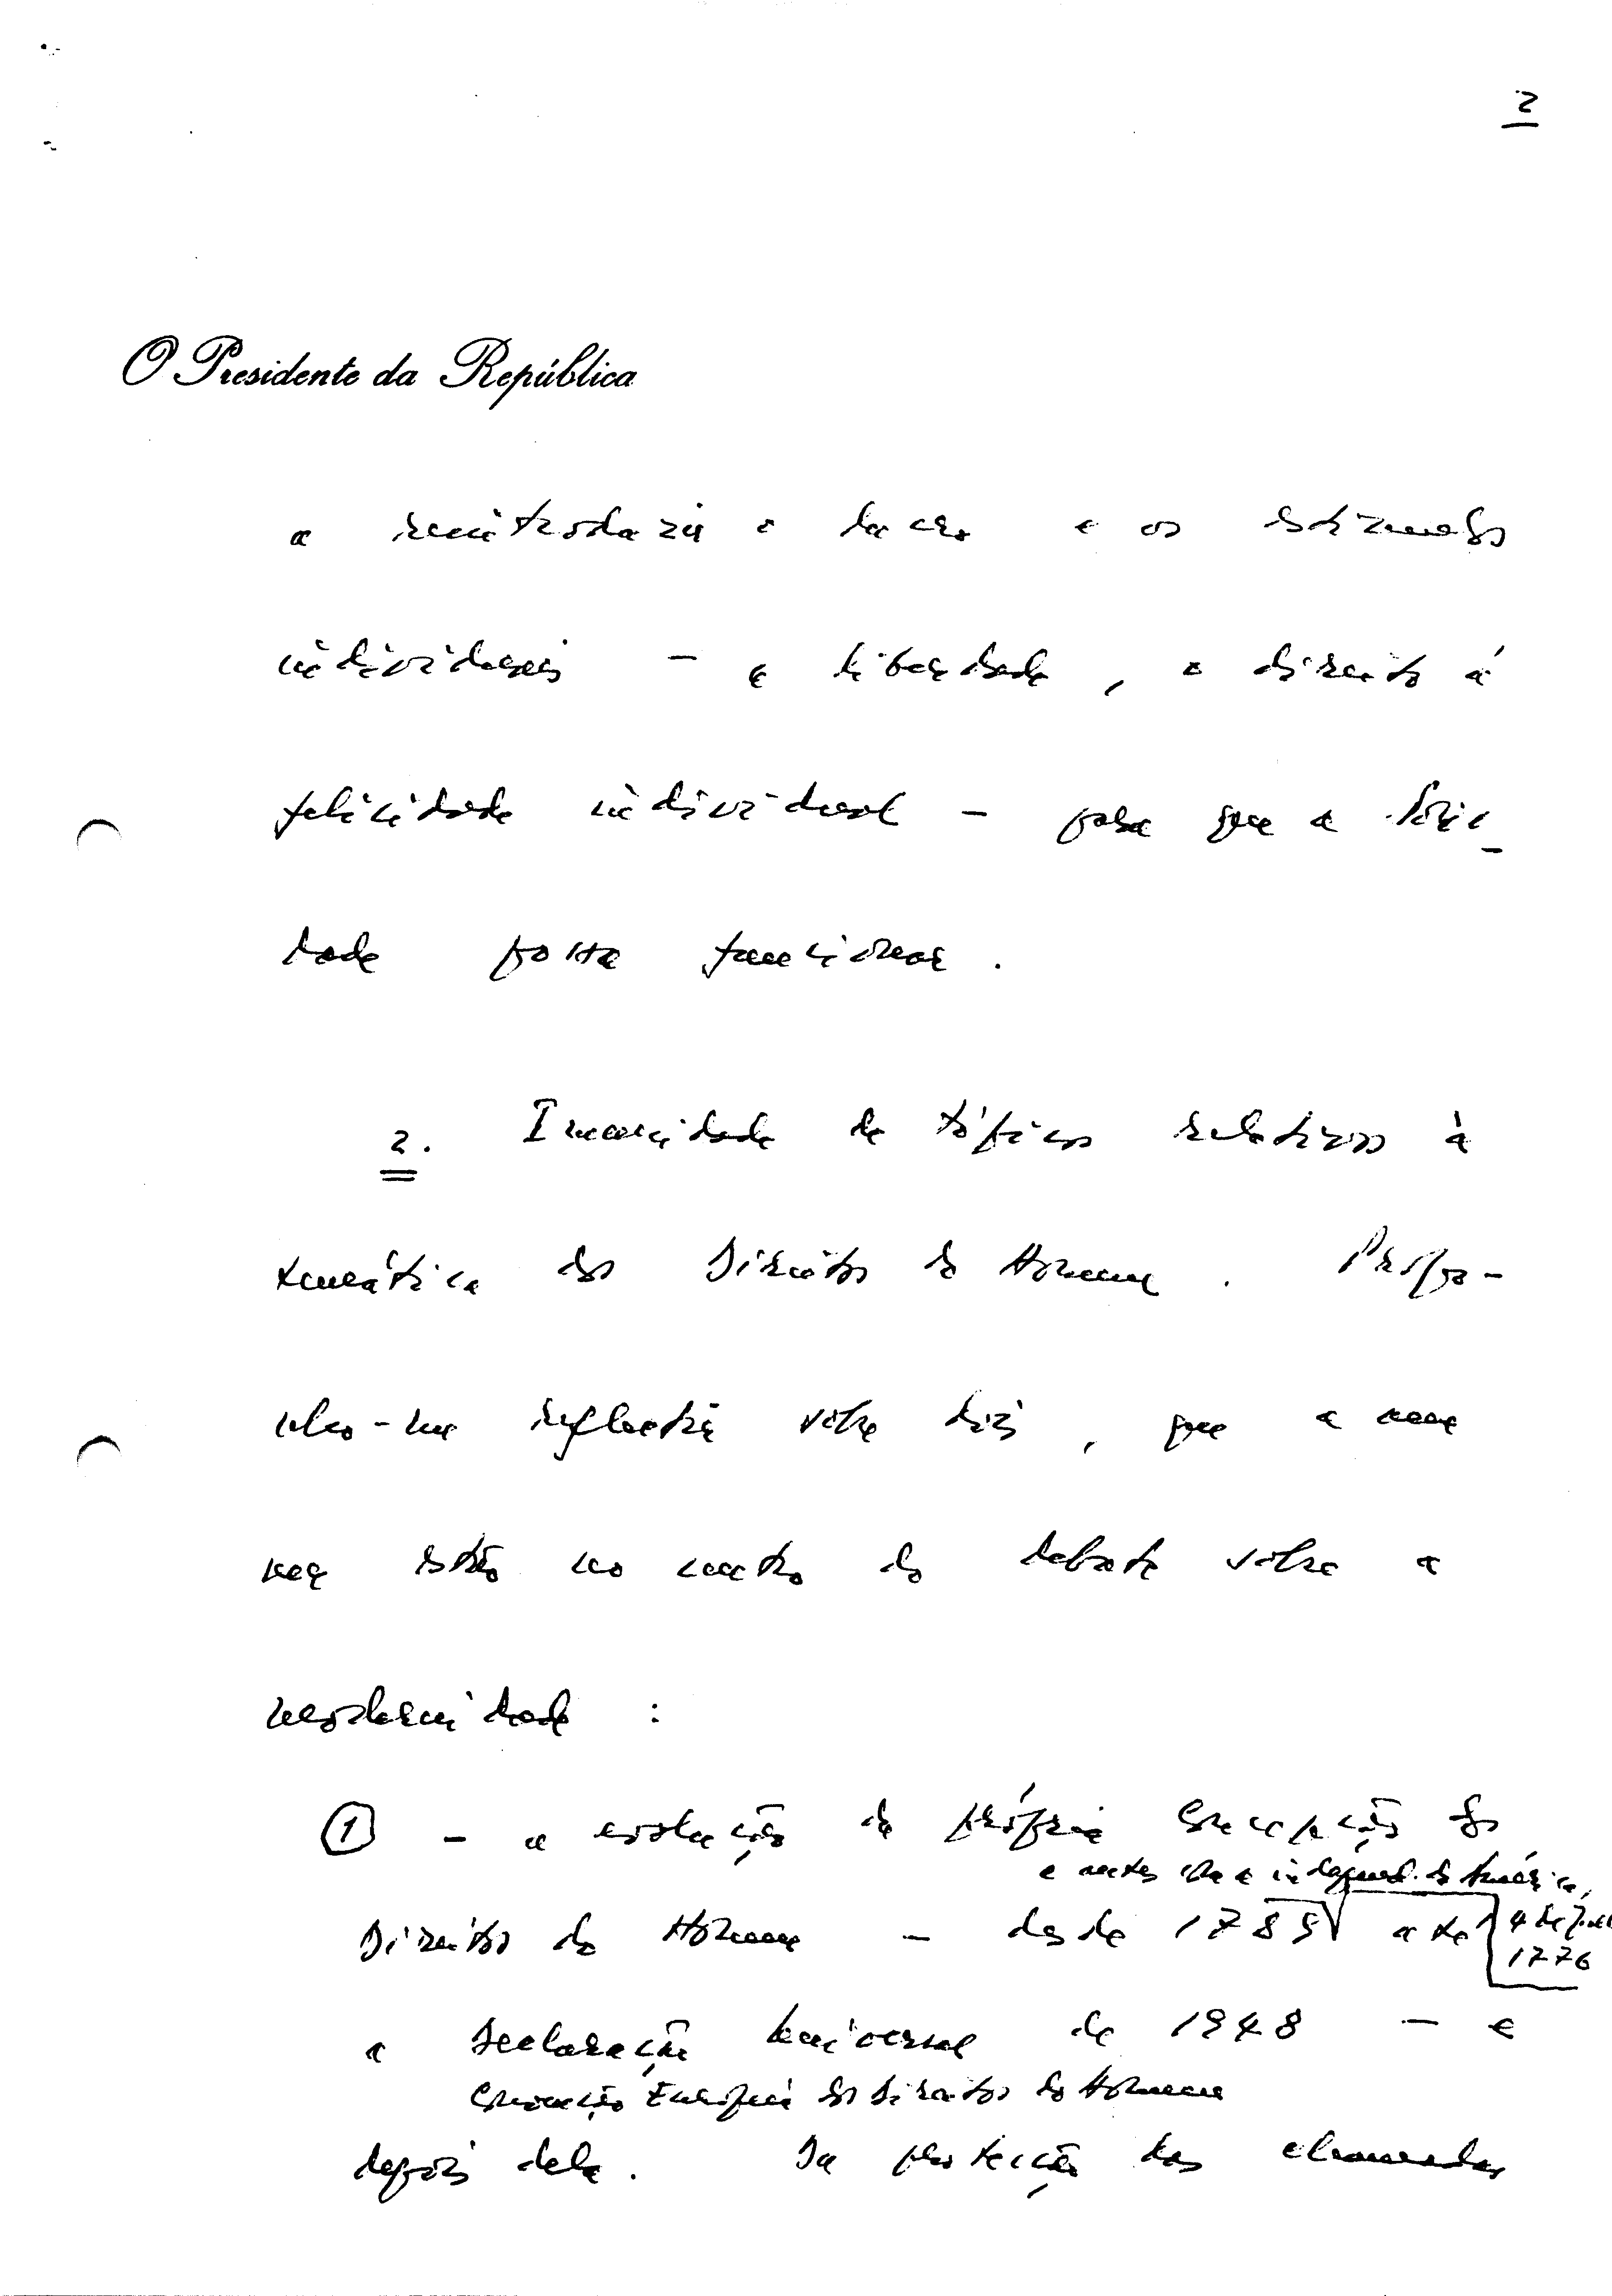 2
O Presidente da República
a reintroduzir o lucro e os estímulos
individuais - a liberdade, o direito à
felicidade individual - para que a socie-
dade possa funcionar.
2. Imensidade de tópicos relativos à
temática dos Direitos do Homem. Propo-
nho-me reflectir sobre dois, que a meu
ver estão no centro do debate sobre a
modernidade:
① - a evolução da própria concepção dos
e antes dela a independ. da América,
Direitos do Homem - desde 1789 até
4 de Jul
1776
a Declaração Universal de 1948 - e
Convenção Europeia dos Direitos do Homem
depois dela. Da protecção das chamadas